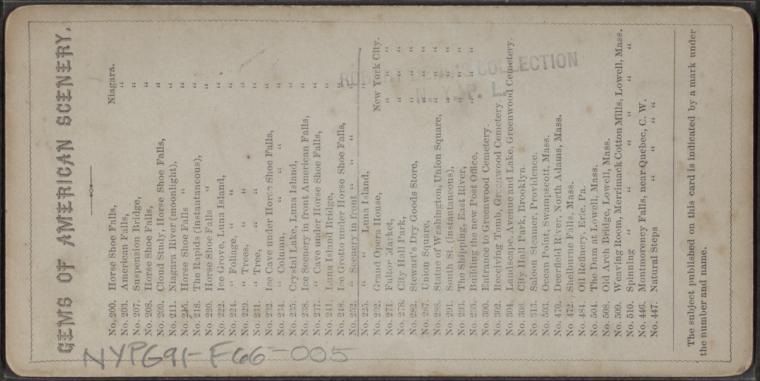 GEMS OF AMERICAN SCENERY.
No. 200. Horse Shoe Falls, Niagara.
No. 203. American Falls, "
No. 207. Suspension Bridge, "
No. 208. Horse Shoe Falls, "
No. 209. Cloud Study, Horse Shoe Falls, "
No. 211. Niagara River (moonlight), "
No. 216. Horse Shoe Falls " "
No. 218. Rapids (instantaneous), "
No. 220. Horse Shoe Falls " "
No. 222. Ice Grove, Luna Island, "
No. 224. " Foliage, " "
No. 229. " Trees, " "
No. 231. " Tree, "
No. 232. Ice Cave under Horse Shoe Falls, "
No. 234. " Column, " "
No. 235. Crystal Lake, Luna Island, "
No. 238. Ice Scenery in front American Falls, "
No. 237. " Cave under Horse Shoe Falls, "
No. 241. Luna Island Bridge, "
No. 248. Ice Grotto under Horse Shoe Falls, "
No. 252. " Scenery in front " " "
No. 225. " " Luna Island, "
No. 292. Grand Opera House, New York City.
No. 271. Fulton Market, " "
No. 278. City Hall Park, " "
No. 282. Stewart's Dry Goods Store, " "
No. 287. Union Square, " "
No. 288. Statue of Washington, Union Square, " "
No. 291. South St. (instantaneous), " "
No. 293. The Shipping, East River, " "
No. 253. Building the new Post Office, " "
No. 300. Entrance to Greenwood Cemetery.
No. 302. Receiving Tomb, Greenwood Cemetery
No. 304. Landscape, Avenue and Lake, Greenwood Cemetery.
No. 306. City Hall Park, Brooklyn.
No. 313. Saloon Steamer, Providence.
No. 503. Ocean Point, Swampscott, Mass.
No. 470. Deerfield River, North Adams, Mass.
No. 472. Shelburne Falls, Mass.
No. 484. Oil Refinery, Erie, Pa.
No. 504. The Dam at Lowell, Mass.
No. 508. Old Arch Bridge, Lowell, Mass.
No. 509. Weaving Room, Merrimack Cotton Mills, Lowell, Mass.
No. 510. Spinning " " " " "
No. 446. Montmorency Falls, near Quebec, C. W.
No. 447. Natural Steps " " "
The subject published on this card is indicated by a mark under
the number and name.
COLLECTION
N. Y. P. L.
NYPG91-F66-005